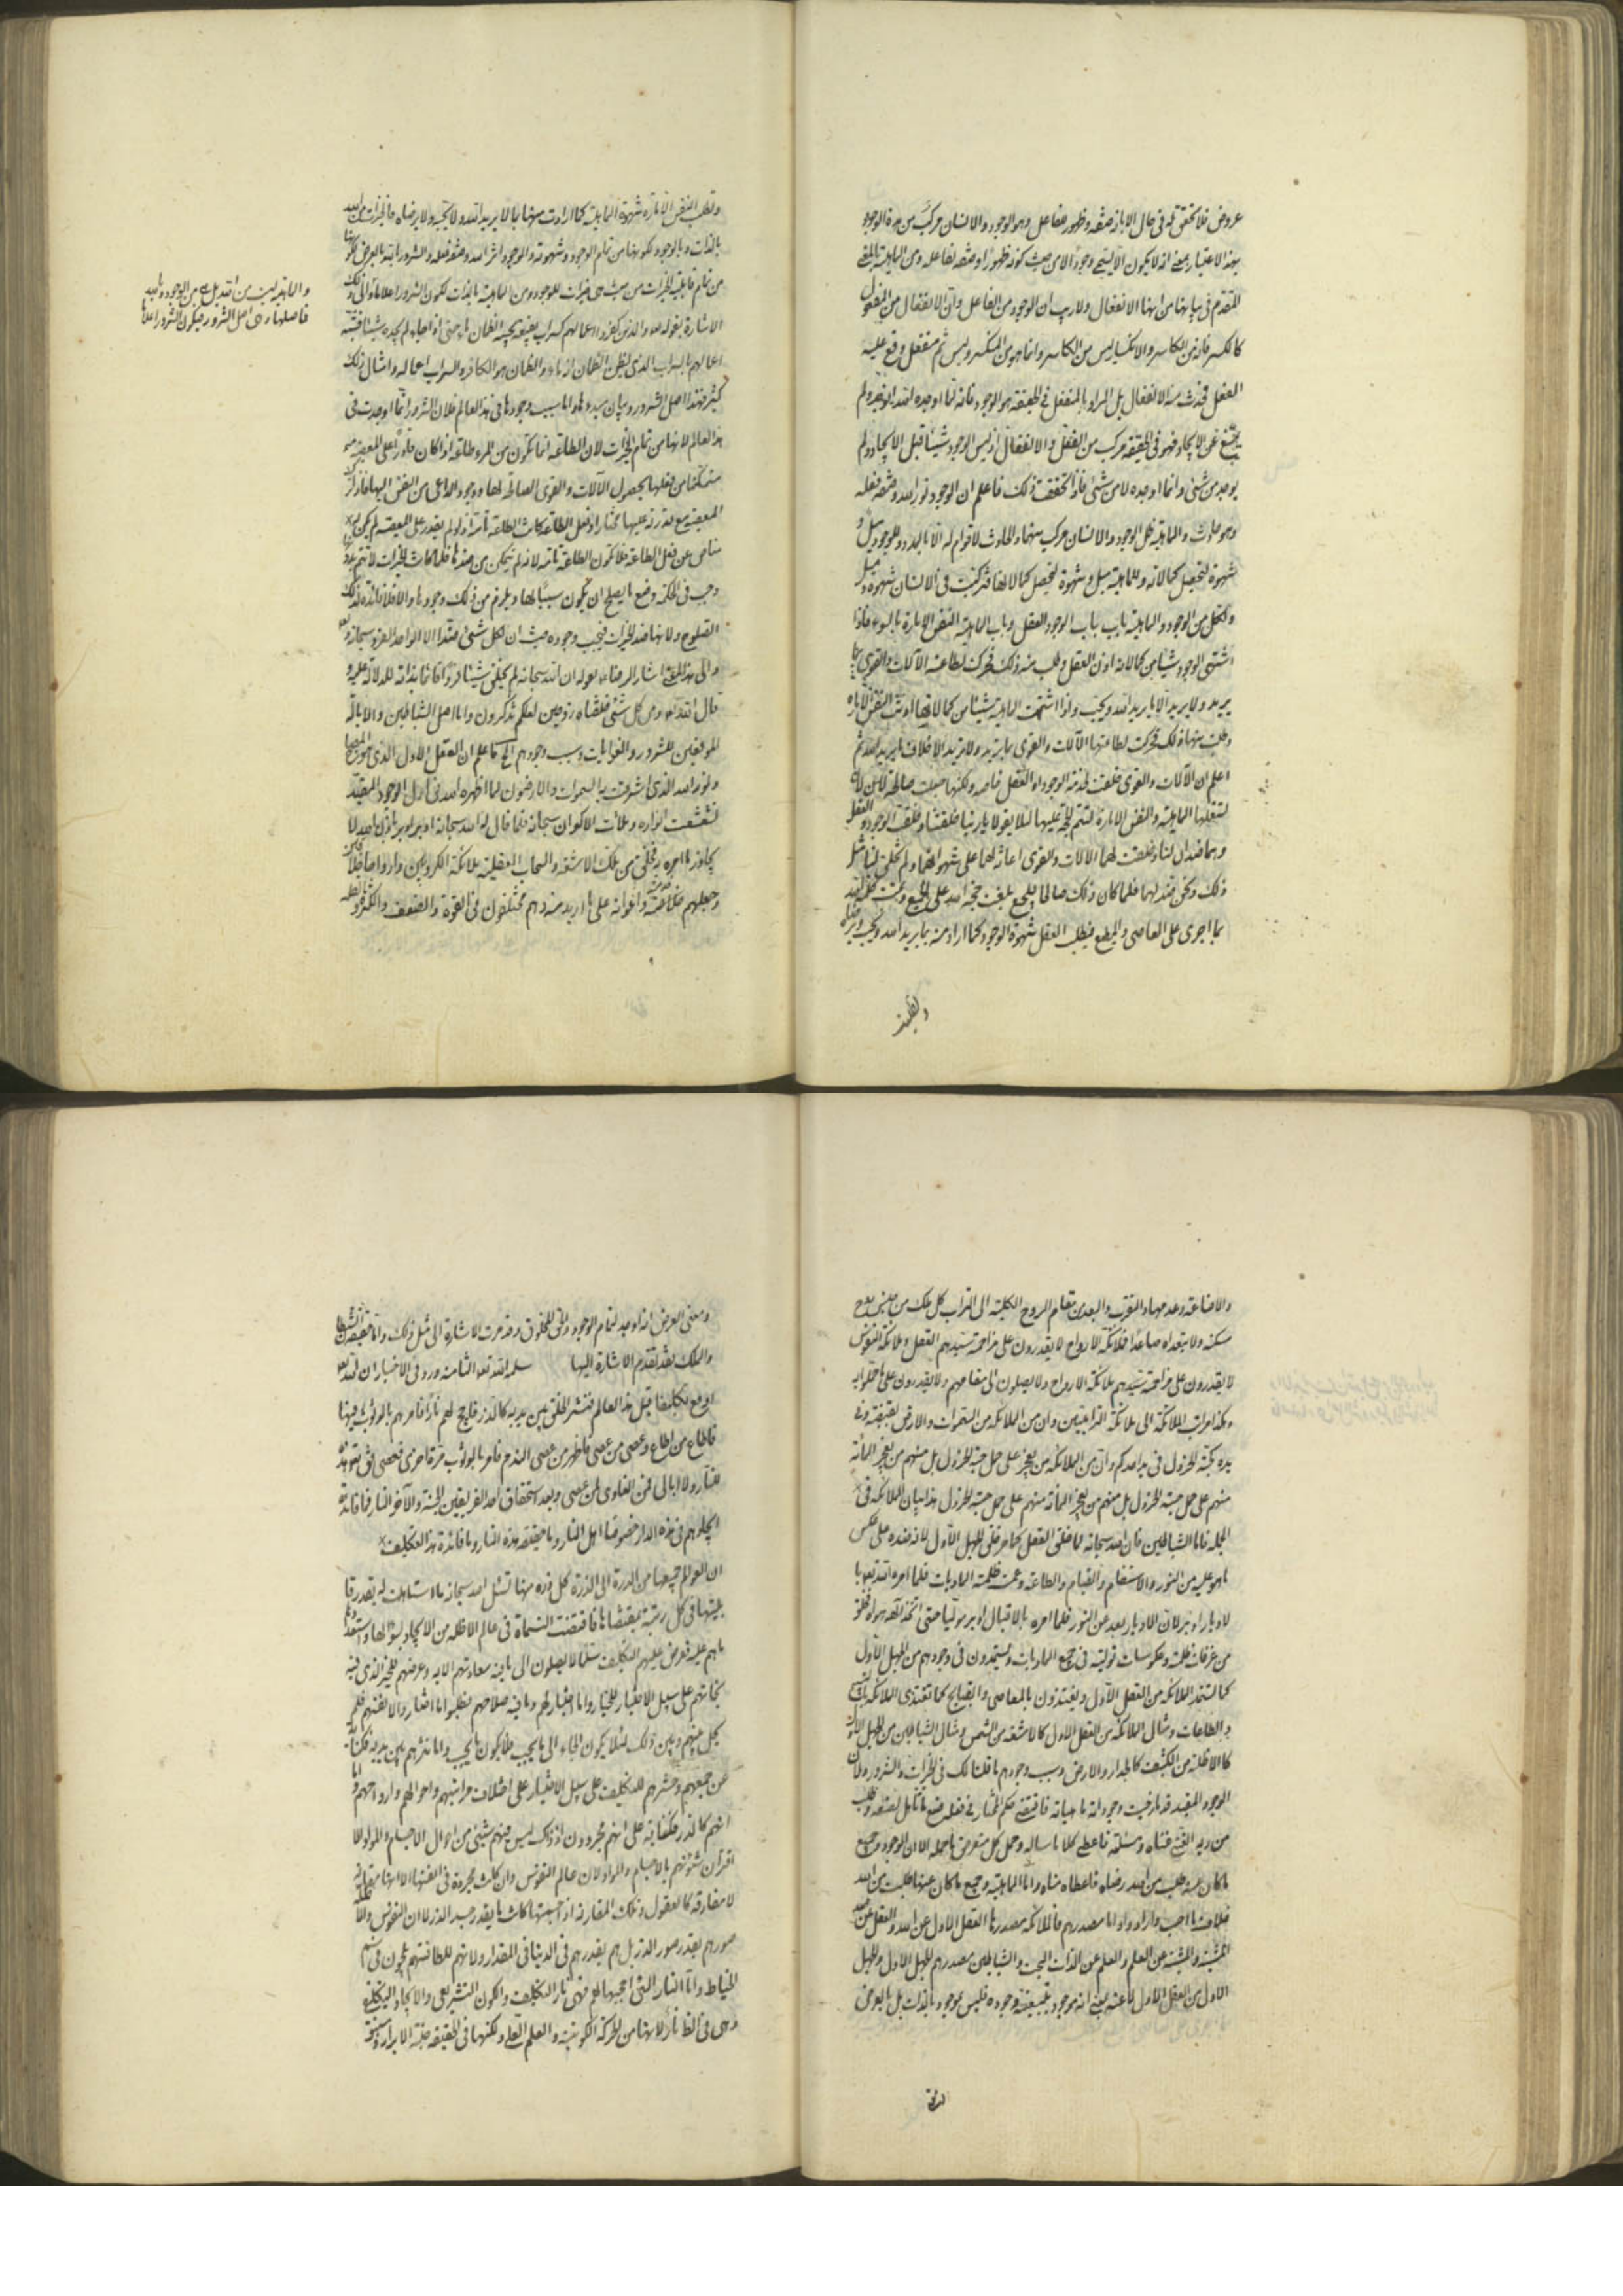 عروض فلا تحقق له في حال الا بانه صفة وظهور فاعل وهو الوجود والانسان مركب من هذا الوجود
بهذا الاعتبار بمعنى انه لا يكون الا لشيء وجودا الا من حيث كونه ظهورا وصفة لفاعله ومن الماهية بالمعنى
المتقدم في بيانها من انها الانفعال ولا ريب ان الوجود من الفاعل وان الانفعال من المفعول
كالكسر فانه من الكاسر والانكسار ليس من الكاسر وانما هو من المنكسر وليس ثم منفعل وقع عليه
الفعل فحدث منه الانفعال بل المراد بالمنفعل في الحقيقة هو الوجود فانه لما اوجده الله انوجد ولم
يمتنع عن الايجاد فهو في الحقيقة مركب من الفعل والانفعال اذ ليس الوجود شيئا قبل الايجاد ولم
يوجد من شيء وانما اوجده لا من شيء فاذا تحققت ذلك فاعلم ان الوجود نور الله وصفة فعله
وهو حادث والماهية ظل الوجود والانسان مركب منهما والحادث لا قوام له الا بالمدد وللوجود ميل و
شهوة لتحصيل كمالاته وللماهية ميل وشهوة لتحصيل كمالاتها فتركبت في الانسان شهوة وميل
ولكل من الوجود والماهية باب باب الوجود العقل وباب الماهية النفس الامارة بالسوء فاذا
اشتهى الوجود شيئا من كمالاته اذن العقل وطلب منه ذلك فحركت لطاعته الآلات والقوى بما
يريد ولا يريد الا ما يريد الله ويحب واذا اشتهت الماهية شيئا من كمالاتها اذنت النفس الامارة
وطلبت منها ذلك فحركت لطاعتها الآلات والقوى بما تريد ولا تريد الا خلاف ما يريد الله ثم
اعلم ان الآلات والقوى خلقت لخدمة الوجود او العقل خاصة ولكنها جعلت صالحة لان
تستعملها الماهية والنفس الامارة لتتم الحجة عليها لئلا يقولا يا ربنا خلقتنا وخلقت الوجود والعقل
وهما ضدان لنا وخلقت لهما الآلات والقوى اعانة لهما على شهواتهما ولم تخلق لنا مثل
ذلك ونحن ضد لهما فلما كان ذلك صالحا للجميع بلغت حجة الله على الجميع وتمت كلمة الله
بما اجرى على العاصي والمطيع فيطلب العقل شهوة الوجود كما اراد منه بما يريد الله ويحب ويرضاه
وتطلب
وتطلب النفس الامارة شهوة الماهية كما ارادت منها بما لا يريد الله ولا يحب ولا يرضاه فالخيرات من الله
بالذات وبالوجود لكونها من تمام الوجود وشهوته والوجود اثر الله وصفة فعله والشرور ابته بالعرض لكونها
من تمام قابلية الخيرات من حيث هي خيرات للوجود ومن الماهية بالذات لكون الشرور اعداما والى ذلك
الاشارة بقوله تعالى والذين كفروا اعمالهم كسراب بقيعة يحسبه الظمآن ماء حتى اذا جاءه لم يجده شيئا فشبه
اعمالهم بالسراب الذي يظن الظمآن انه ماء والظمآن هو الكافر والسراب اعماله وامثال ذلك
كثير فهذا اصل الشرور وبيان مبدءها واما سبب وجودها في هذا العالم فلان الشرور انما اوجدت في
هذا العالم لانها من تمام الخيرات لان الطاعة انما تكون من المرء طاعة اذا كان قادرا على المعصية
متمكنا من فعلها لحصول الآلات والقوى الصالحة لها ووجود الداعي من النفس اليها فاذا ترك
المعصية مع قدرته عليها مختارا وفعل الطاعة كانت الطاعة تامة اذ لو لم يقدر على المعصية لم يكن
مناص عن فعل الطاعة فلا تكون الطاعة تامة لانه لم يتمكن من ضدها فلما كانت الخيرات لا تتم بدونها
وجب في الحكمة وضع ما يصلح ان يكون سببا لها ويلزم من ذلك وجودها والا فلا فائدة لذلك
الصلوح ولانها ضد الخيرات فيجب وجوده حيث ان لكل شيء ضدا الا الواحد الفرد سبحانه وتعالى
والى هذا المعنى اشار الرضا ع بقوله ان الله سبحانه لم يخلق شيئا فردا قائما بذاته للدلالة عليه و
قال الله تعالى ومن كل شيء خلقنا زوجين لعلكم تذكرون واما اصل الشياطين والابالسة
الموقعين للشرور والغوايات وسبب وجودهم الخ فاعلم ان العقل الاول الذي هو المصباح
ونور الله الذي اشرقت به السموات والارضون لما اظهره الله في اول الوجود المقيد
تشعشعت انواره وملأت الاكوان سبحانه فلما قال له الله سبحانه ادبر ادبر باذن الله لا
يتجاوز ما امره به فخلق من تلك الاشعة والسحاب العقلية ملائكة الكروبيين وارواحا
وجعلهم خدمته واعوانه على ما اريد منه وهم مختلفون في القوة والضعف والكثرة والقلة
والماهية ليست من الله بل هي من الوجود وبالله
فاصلها وهي اصل الشرور فيكون الشرور اعداما
والاضاعة وعدمها والتقرب والبعد من مقام الروح الكلية الى التراب كل ملك من جنس روح
مسكنه ولا يتعداه صاعدا فملائكة الارواح لا يقدرون على مزاحمة سيدهم العقل وملائكة النفوس
لا يقدرون على مزاحمة سيدهم ملائكة الارواح ولا يصلون الى مقامهم ولا يقدرون على ما حملوا به
وهكذا مراتب الملائكة الى ملائكة الترابيين وان من الملائكة من السموات والارض بقبضته وفي
يده كحبة الخردل في يد احدكم وان من الملائكة من يعجز على حمل حبة الخردل بل منهم من يعجز المأة
منهم على حمل حبة الخردل بل منهم من يعجز المأة منهم على حمل حبة الخردل هذا بيان الملائكة في
الجملة فاما الشياطين فان الله سبحانه لما خلق العقل كما مر خلق الجهل الاول لانه ضده على عكس
ما هو عليه من النور والاستقام والقيام والطاعة وعمت ظلمته الماديات فلما امره الله تعالى با
لادبار ادبر لان الادبار بعد عن النور فلما امره بالاقبال ادبر موليا حتى اتخذ الهه هواه فخلق
من غرفات ظلمة وعكوسات في جميع الماديات ويستمدون في وجودهم من الجهل الاول
كما تستمد الملائكة من العقل الاول ويغتذون بالمعاصي والقبايح كما تغتذي الملائكة بالتسبيح
والطاعات ومثال الملائكة من العقل الاول كالاشعة من الشمس ومثال الشياطين من الجهل الاول
كالاظلة من الكثيف كالجدار والارض وسبب وجودهم ما قلنا لك في الخيرات والشرور ولان
الوجود المقيد قد مازجت وجوداته ماهياته فاقتضى حكم المختار في فعله صنع ما تأهل لصنعه وطلب
من ربه الغني غناه ومسئلته فاعطى كلا ما سأله وحمل كل متعرض ما حمله الا ان الوجود وجميع
ما كان عنه وطلب من الله رضاه فاعطاه مناه واما الماهية وجميع ما كان عنها طلبت من الله
خلاف ما احب واراد واما مصدرهم فالملائكة مصدرها العقل الاول عن الله والعقل عن
المشية والمشية عن العلم والعلم عن الذات البحت والشياطين مصدرهم الجهل الاول والجهل
الاول من العقل الاول لا عنه بمعنى انه موجود بتبعية وجوده فليس بموجود بالذات بل بالعرض
ومعنى العرض انه اوجد لتمام الوجود والحق المخلوق وقد مرت الاشارة الى مثل ذلك واما حقيقة الشيطان
والملك فقد تقدم الاشارة اليها سلمه الله تعالى الثامنة ورد في الاخبار ان الله تعالى
اوقع تكليفا قبل هذا العالم فنشر الخلق بين يديه كالذر فاجج لهم نارا فامرهم بالوثوب فيها
فاطاع من اطاع وعصى من عصى فاظهر من عصى الندم فامر بالوثوب مرة اخرى فعصى فق تعالى هذا
للنار ولا ابالي فمن الغاوي لمن عصى وبعد استحقاق احد الفريقين الجنة والآخر النار فما فائدة
ايجادهم في هذه الدار خصوصا اهل النار وما حقيقة هذه النار وما فائدة هذا التكليف
ان العوالم جميعها من الدرة الى الذرة كل ذرة منها تسئل الله سبحانه ما استاهلت له بقدر قا
بليتها في كل رتبة بمقتضاها فاقتضت النسمات في عالم الاظلة من الايجاد بسؤالها واستعداد
ما هم عليه فعرض عليهم التكليف سلما لا يصلون الى ما فيه سعادتهم الا به وعرضهم للخير الذي فيه
نجاتهم على سبيل الاختيار للخيار واما اخبارهم وما فيه صلاحهم فطلبوا ما اختاروا لانفسهم فلم
يحل بينهم وبين ذلك لئلا يكون الجاء الى ما يحب فلا يكون ما يحب واما نثرهم بين يديه فكناية
عن جمعهم وحشرهم للتكليف على سبيل الاختيار على اختلاف مراتبهم واحوالهم وارواحهم واما
انهم كالذر فكناية على انهم مجردون اذ ذاك ليس فيهم شيء من احوال الاجسام والمواد لا
اقتران شئونهم بالاجسام والمواد لان عالم النفوس وان كانت مجردة في انفسها الا انها مقارنة
لا مفارقة كالعقول وتلك المقارنة اذ احببتها كانت بقدر جسد الذر لا ان النفوس
صورهم بقدر صور الذر بل هم بقدرهم في الدنيا في المقدار ولانهم للطافتهم يلجون في سم
الخياط واما النار التي اججها لهم فهي نار التكليف والكون التشريعي والايجاد التكليفي
وهي في الظاهر نار لانها من الحركة الكونية والعلم الفعلي ولكنها في الحقيقة جنة الابرار